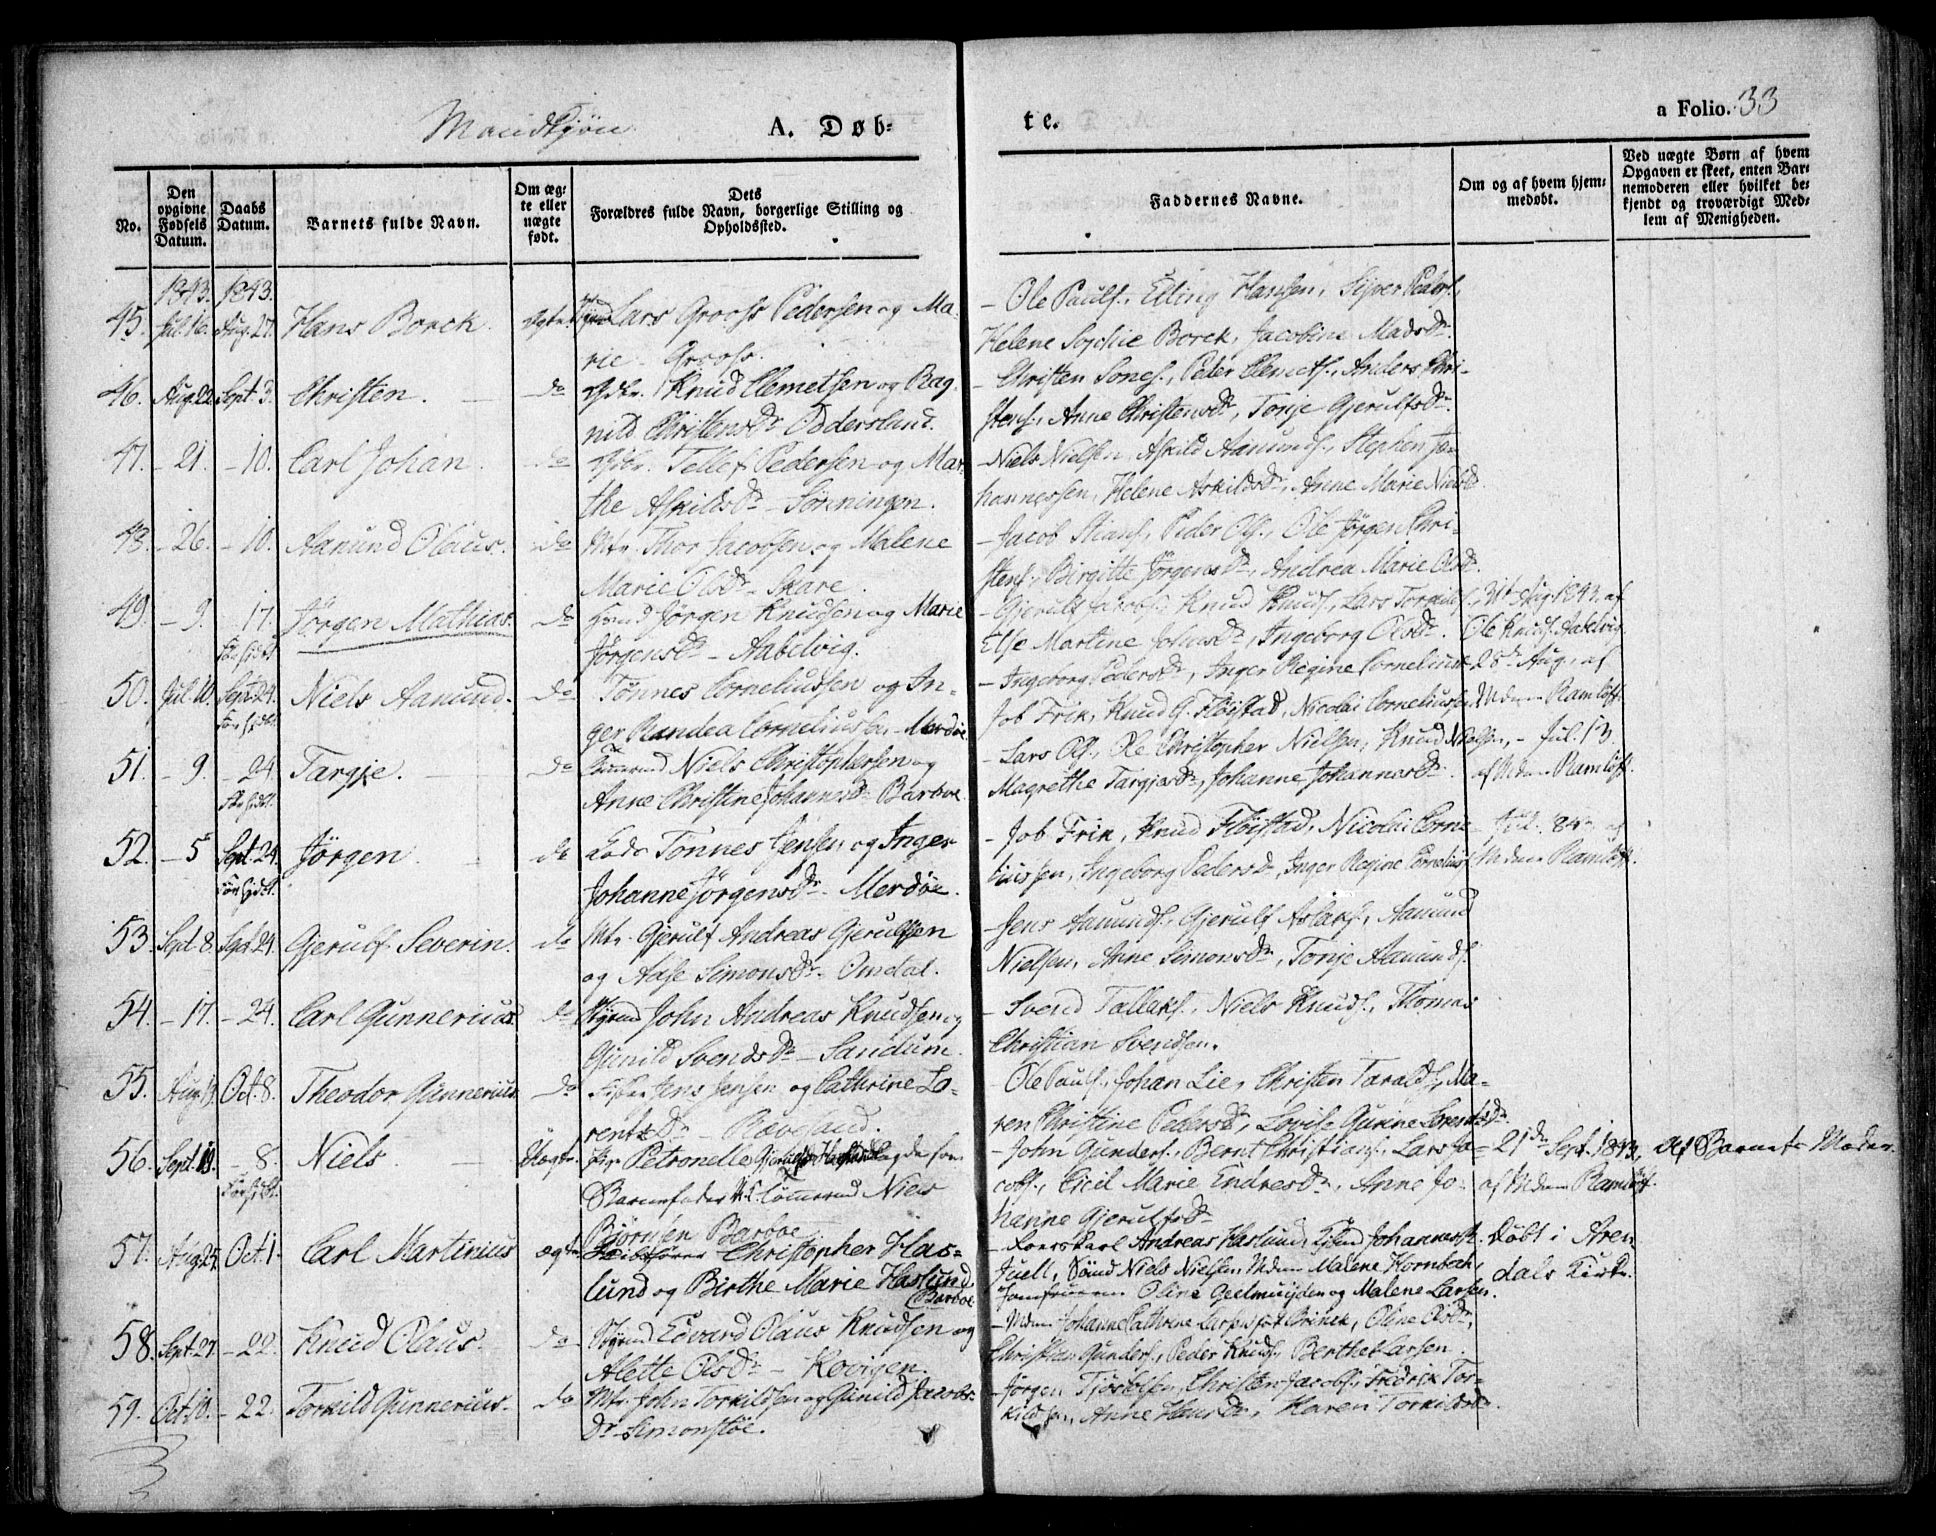 Mandkjøn
A. Døb-
te.
a Folio. 33
No.
Den opgivne Fødsels Datum.
Daabs Datum.
Barnets fulde Navn.
Om ægte eller uægte født.
Dets
Forældres fulde Navn, borgerlige Stilling og Opholdssted.
Faddernes Navne.
Om og af hvem hjemmedøbt.
Ved uægte Børn af hvem
Opgaven er skeet, enten Bar-
nemoderen eller hvilket be-
kjendt og troværdigt Med-
lem af Menigheden.
1843. 1843.
45. Jul. 16. Aug. 27. Hans Borck. Ægte. Lars Grooss Pedersen og Ma-
rie Grooss.
- Ole Pauls., Elling Hansen, Siver Peders.,
Helene Sophie Borck, Jacobine Madsdr.
46. Aug. 22. Sept. 3. Christen. do Gbr. Knud Clemetsen og Rag-
nild Christensdr Oddersland.
- Christen Sones., Peder Clemets., Anders Chri-
stens., Anne Christensdr, Tonje Gjerulfsdr.
47. - 21. - 10. Carl Johan. do Gbr. Tellef Pedersen og Mar-
the Askildsdr - Sønningen.
- Niels Nielsen, Askild Aamunds., Stephen Jo-
hannessen, Helene Askildsdr, Anne Marie Nielsdr.
48. - 26. - 10. Aanund Olaus. do Mtr. Thor Jacobsen og Malene
Marie Olsdr - Skare.
- Jacob Stians., Peder Ols., Ole Jørgen Chri-
stens., Birgitte Jørgensdr, Andrea Marie Olsdr.
49. - 9. 17. Jörgen Mathias. do Hmd Jørgen Knudsen og Marie
Jørgensdr - Aabelvig.
- Gjerulf Jacobs., Knud Knuds., Lars Torkilds.,
Else Martine Johnsdr, Ingeborg Olsdr.
31te Aug. 1843. af
Ole Knuds. Aabelvig.
50. Jul. 10. Sept. 24. Niels Aamund. do Tønnes Corneliussen og In-
ger Randea Corneliusdr. Merdøe.
- Ingeborg Pedersdr, Inger Regine Corneliusdr
Job Frik, Knud G. Fløistad, Nicolai Corneliussen
28de Aug. af
Mdm Ramløff.
51. - 9. - 24. Targje. do Tømmd Niels Christophersen og
Anne Christine Johannesdr Barboe.
- Lars Ols., Ole Christopher Nielsen, Knud Nielsen,
Magrethe Targjesdr, Johanne Johannesdr.
- Jul. 13
af Mdm Ramløff.
52. - 5 Sept. 24. Jörgen. do Lods Tönnes Jensen og Inger
Johanne Jørgensdr. Merdøe.
- Job Frik, Knud Fløistad, Nicolai Corne-
liussen, Ingeborg Pedersdr, Inger Regine Corneliusdr
Jul. 8de af
Mdm Ramløff.
53. Sept. 8. Sept. 24. Gjerulf Severin. do Mtr. Gjerulf Andreas Gjerulfsen
og Aase Simonsdr. Omdal.
- Jens Aamunds., Gjerulf Aslaks., Aamund
Nielsen, Anne Simonsdr, Tonje Aamunds.
54. - 17. - 24. Carl Gunnerius. do Styrmd John Andreas Knudsen og
Gunild Svendsdr - Sandum.
- Svend Tallaks., Niels Knuds., Thomas
Christian Svendsen.
55. Aug. 13. Oct. 8. Theodor Gunnerius. do Fisker Jens Jensen og Cathrine Lo-
rentzdr - Rævesand.
- Ole Pauls., Johan Lie, Christen Taralds., Ma-
ren Christine Pedersdr, Lovise Gurine Lorentzdr
56. Sept. 19. - 8. Niels Uægte. Petronelle Gjerulfsdr
Barnefader U. C. Tømmrmd Niels
Bjørnsen Barboe
- John Gunders., Bernt Christians., Lars Ja-
cobs., Cicil Marie Endresdr, Anne Jo-
hanne Gjerulfsdr
21de Sept. 1843,
af Mdm Ramløff.
Af Barnets Moder.
57. Aug. 25. Oct. 1. Carl Martinius ægte Christopher Has-
lund og Birthe Marie Haslund
Barboe
- Andreas Haslund, Johannes
Juell, Niels Nielsen, Mdm Malene Hornbech,
Jomfruerne Oline Geelmuijden og Malene Larsen.
Døbt i Aren
dals Kirke.
58. Sept. 27. - 22. Knud Olaus. do Styrmd Edvard Olaus Knudsen og
Alette Olsdr - Kovigen.
- Mdm Johanne Cathrine Larsen født Brinck, Oline Olsdr,
Christian Gunders., Peder Knuds., Berthe Larsen.
59. Oct. 10. - 22. Torkild Gunnerius. do Mtr. John Torkildsen og Gunild Jacobs-
dr - Simonstøe.
- Jørgen Tjøstolsen, Christen Jacobs., Fredrik Tor-
kildsen, Anne Hansdr, Karen Torkildsdr.